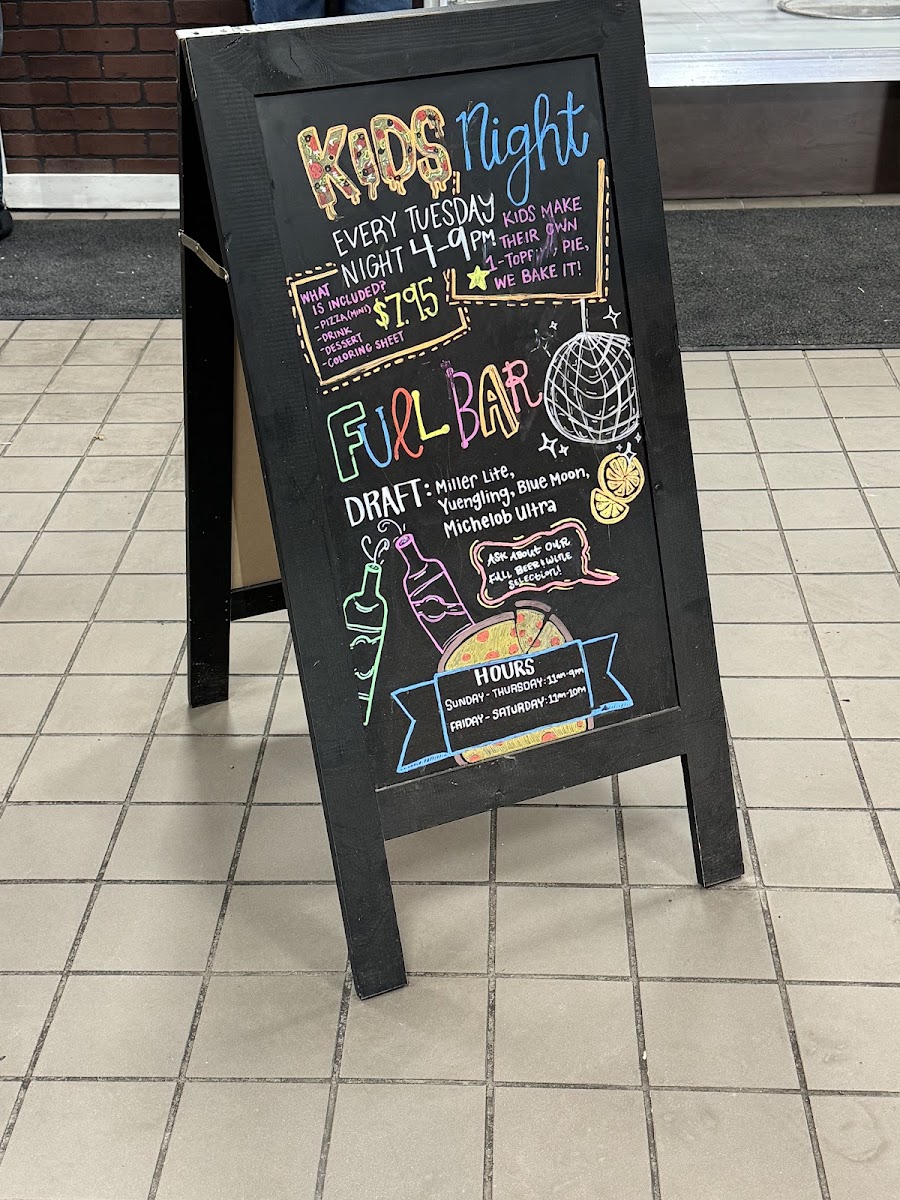 KIDS Night
EVERY TUESDAY
NIGHT 4-9PM
KIDS MAKE
THEIR OWN
1-TOPPING PIE,
WE BAKE IT!
WHAT
IS INCLUDED?
-PIZZA(MINI)
-DRINK
-DESSERT
-COLORING SHEET
$7.95
FULL BAR
DRAFT: Miller Lite,
Yuengling, Blue Moon,
Michelob Ultra
ASK ABOUT OUR
FULL BEER & WINE
SELECTION!
HOURS
SUNDAY - THURSDAY: 11AM-9PM
FRIDAY - SATURDAY: 11AM-10PM